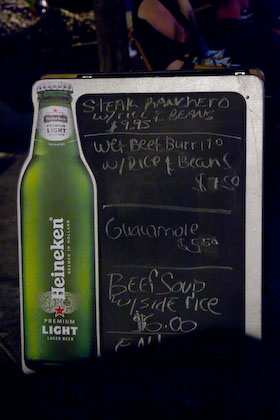 STEAK RANCHERO
W/ RICE & BEANS
$9.95
Wet Beef Burrito
W/ RICE & Beans
$7.50
Guacamole
$5.50
BEEF SOUP
W/ SIDE RICE
$6.00
Heineken
PREMIUM
LIGHT
Heineken
BREWED IN HOLLAND
PREMIUM
LIGHT
LAGER BEER